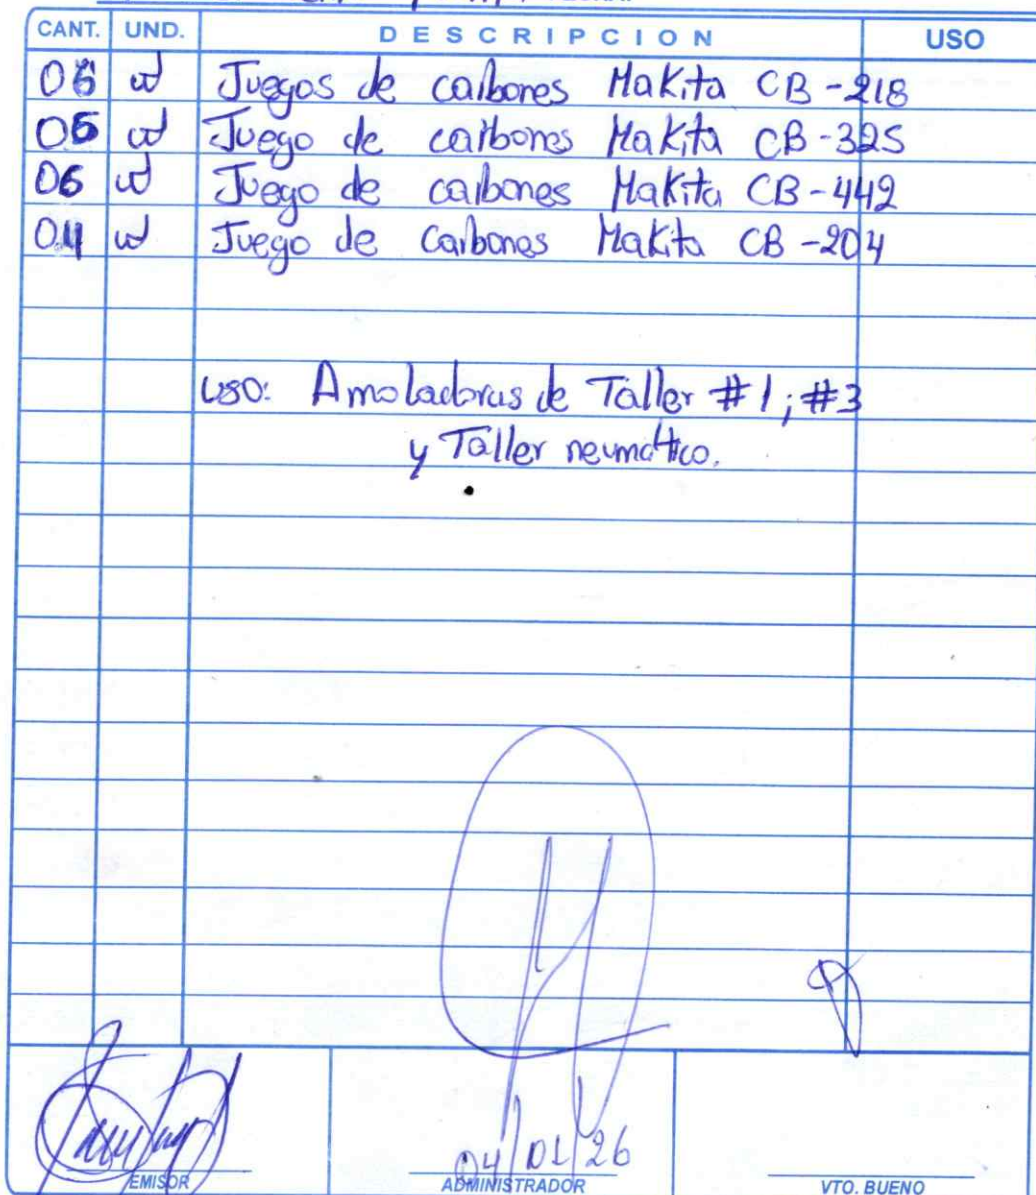 CANT. UND. DESCRIPCION USO
06 ud Juegos de carbones Makita CB-218
06 ud Juego de carbones Makita CB-325
06 ud Juego de carbones Makita CB-442
04 ud Juego de Carbones Makita CB-204
USO: Amoladoras de Taller #1; #3
y Taller neumático.
04/01/26
EMISOR ADMINISTRADOR VTO. BUENO